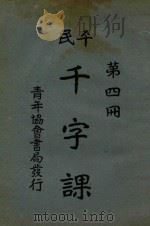 平民
千字課
第四冊
青年協會書局發行
www.mtoou.info mtoou.com